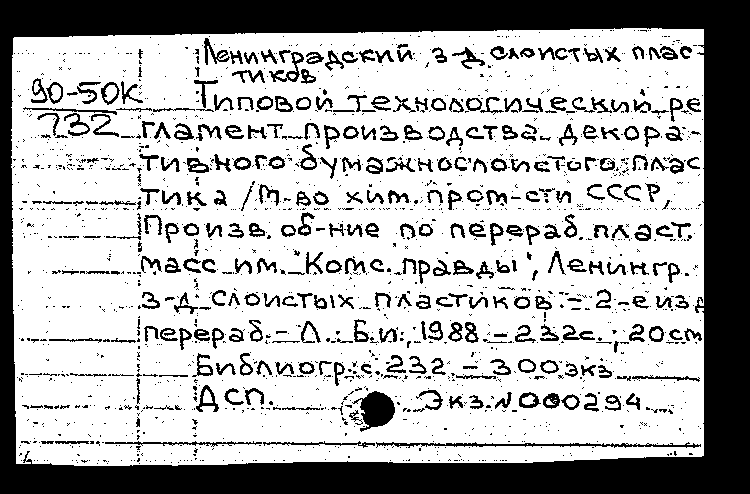 Ленинградский з-д слоистых плас-
тиков
90-50К
232
Типовой технологический ре
гламент производства декора-
тивного бумажнослоистого плас
тика / М-во хим. пром-сти СССР,
Произв. об-ние по перераб. пласт.
масс им. "Комс. правды", Ленингр.
з-д слоистых пластиков. - 2-е изд
перераб. - Л.: Б.и., 1988. - 232с.; 20см
Библиогр.: с. 232 - 300 экз
ДСП. Экз. № 000294.